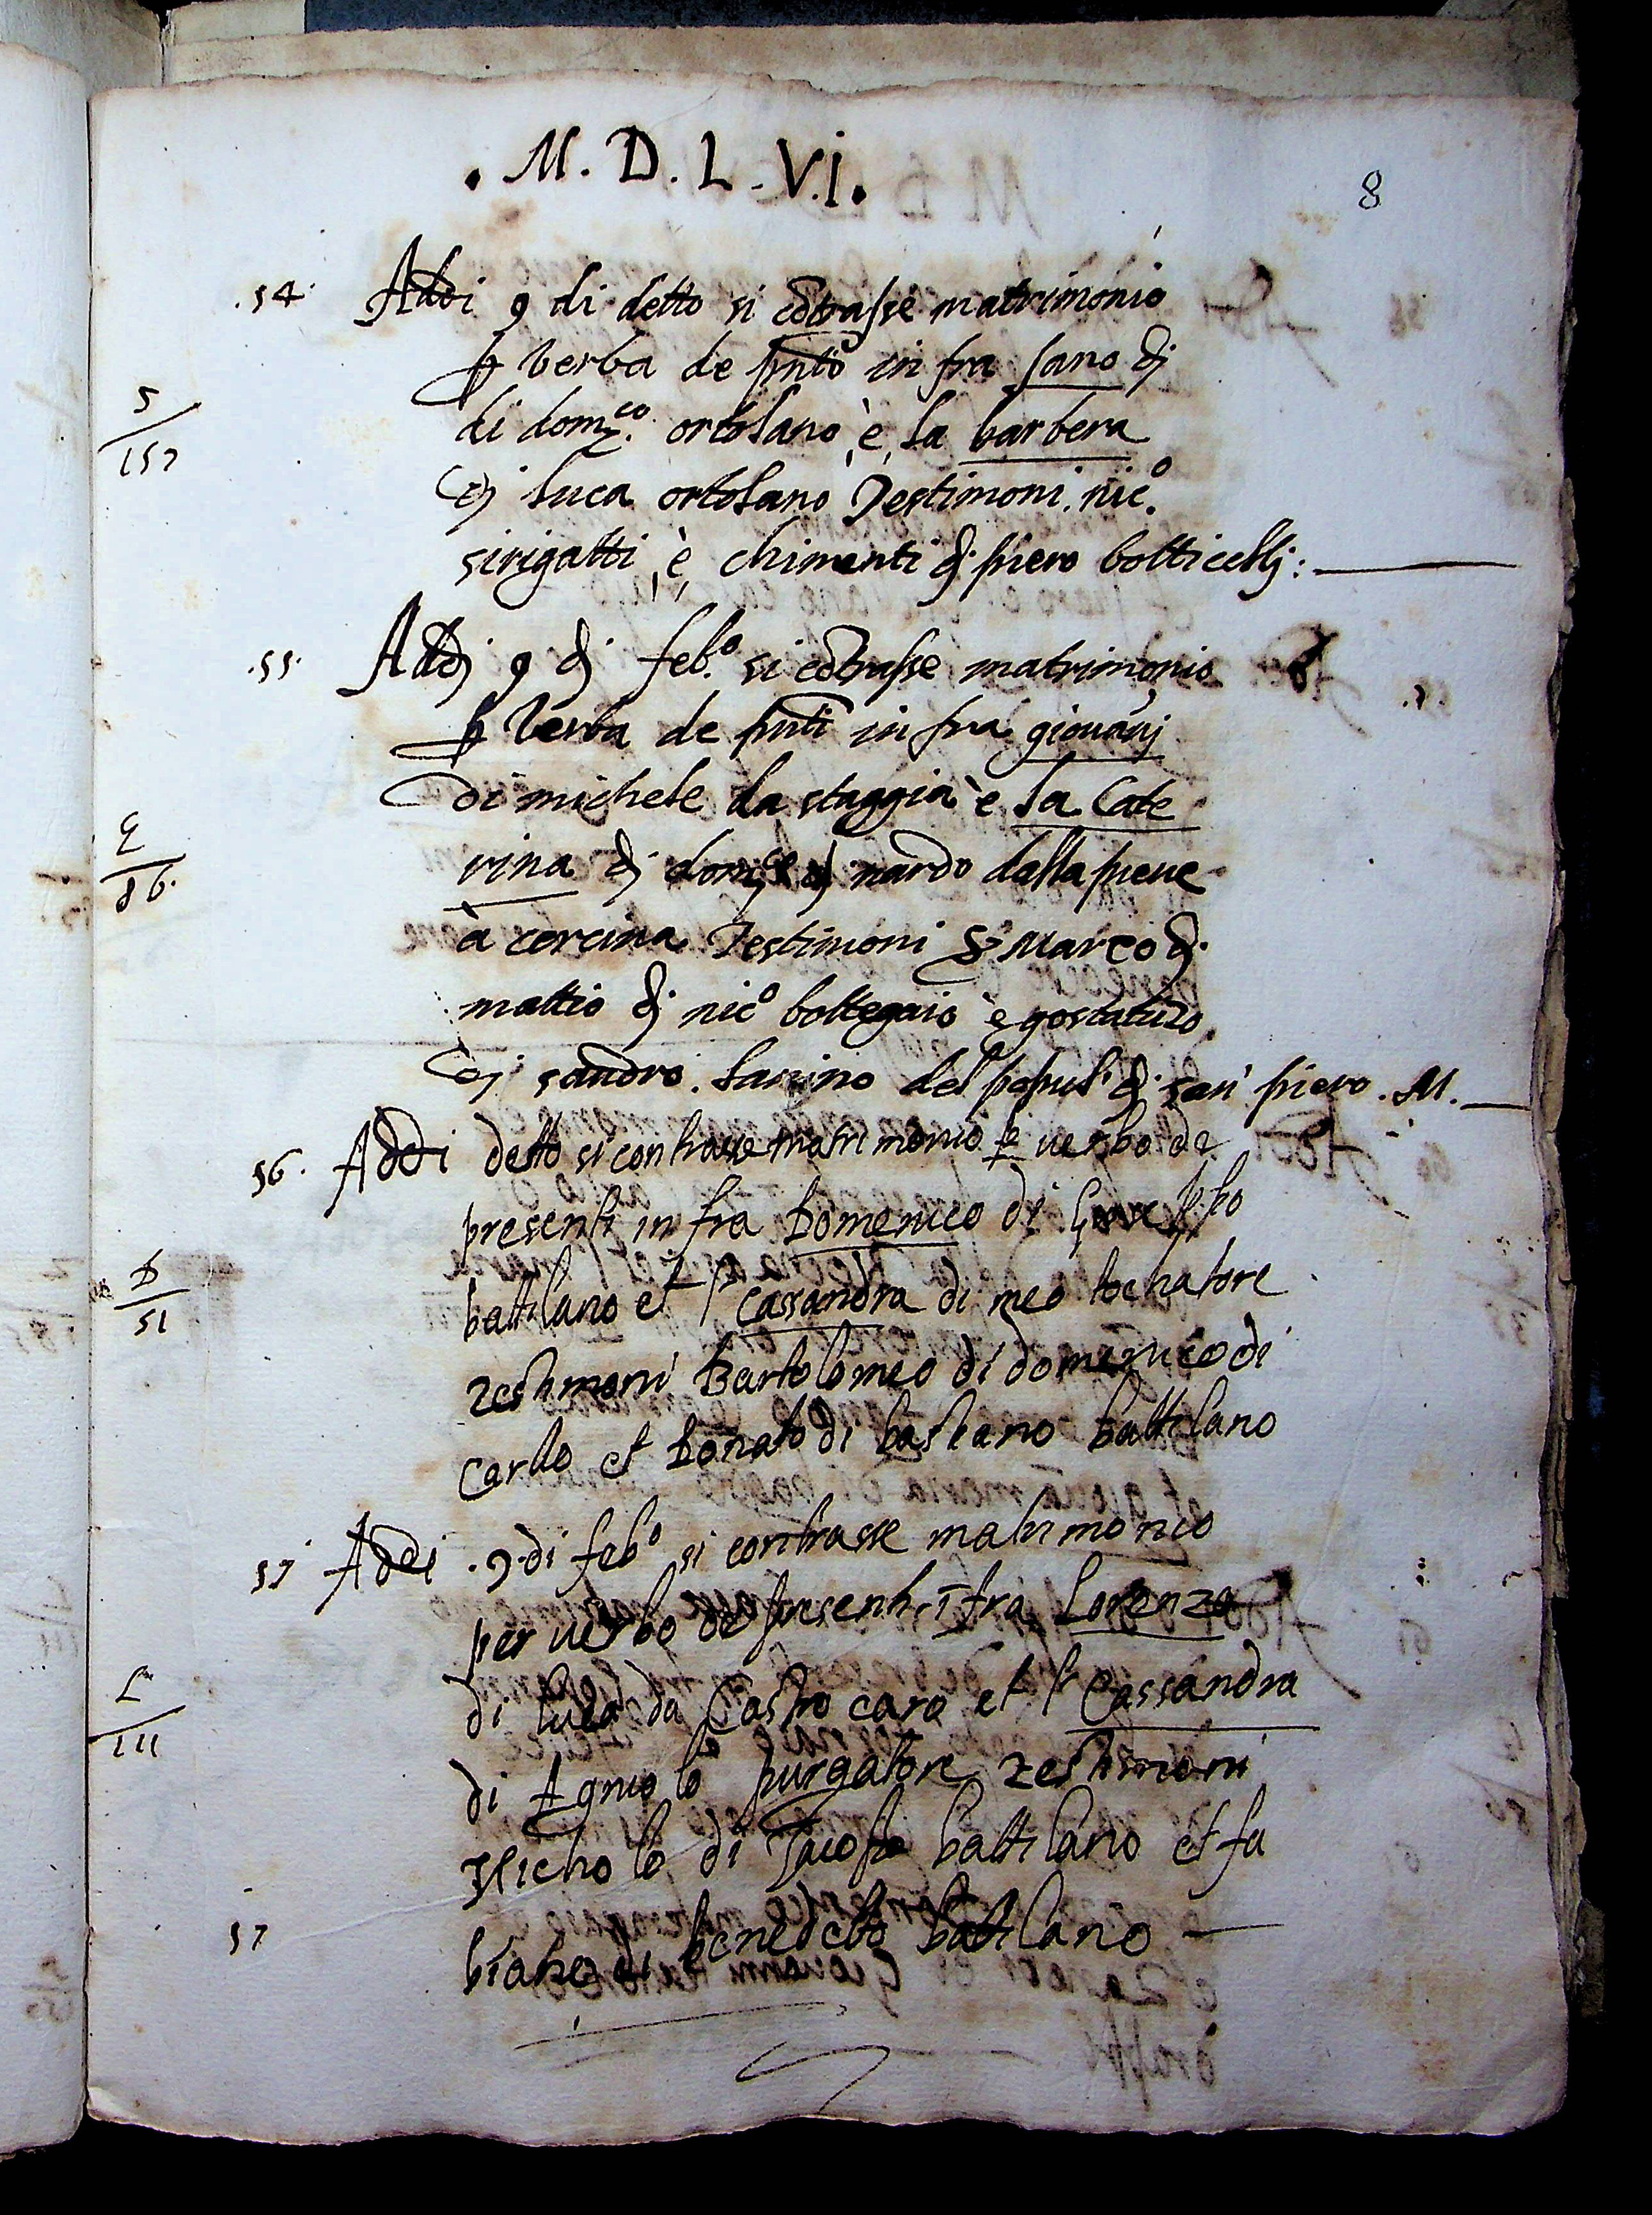 . M. D. L. V.I.
8
.54. Addi 9 di detto si cõtrasse matrimonio
p verba de pñti in fra sano di
di dom.co ortolano è la barbera
S
157
di luca ortolano Testimoni. nic.o
sirigatti è chimenti di piero botticellj: —
.55. Addj 9 dj feb.o si cõtrasse matrimonio
p Verba de pñti in fra giouãnj
di michele da staggia è la Cate
rina dj nardo della pieue
86.
à cercina Testimoni Marco dj
mattio dj nic.o bottegaio è
dj sandro. del popul.o dj san piero. M. —
56. Addi detto si contrasse matrimonio p uerba de
presenti in fra Domenico di
battilano et l.a Cassandra di meo tornatore
D
51
Testimoni Bartolomeo di domenico di
Carlo et Donato di bastiano battilano
57 Addi .9. di feb.o si contrasse matrimonio
per uerba de presenti ĩfra Lorenzo
di luca da Castrocaro et l.a Cassandra
L
111
di Agniolo purgatore Testimoni
Nicholo di Jacopo battilano et fa
57
biano di benedetto battilano —